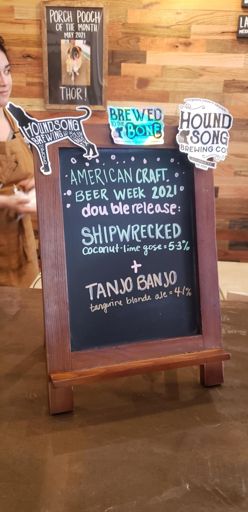 PORCH POOCH
OF THE MONTH
MAY 2021
THOR!
HOUNDSONG
BREWING
BREWED
TO THE
BONE
HOUND
SONG
BREWING CO.
AMERICAN CRAFT
BEER WEEK 2021
double release:
SHIPWRECKED
coconut-lime gose = 5.3%
+
TANJO BANJO
tangerine blonde ale = 4.1%